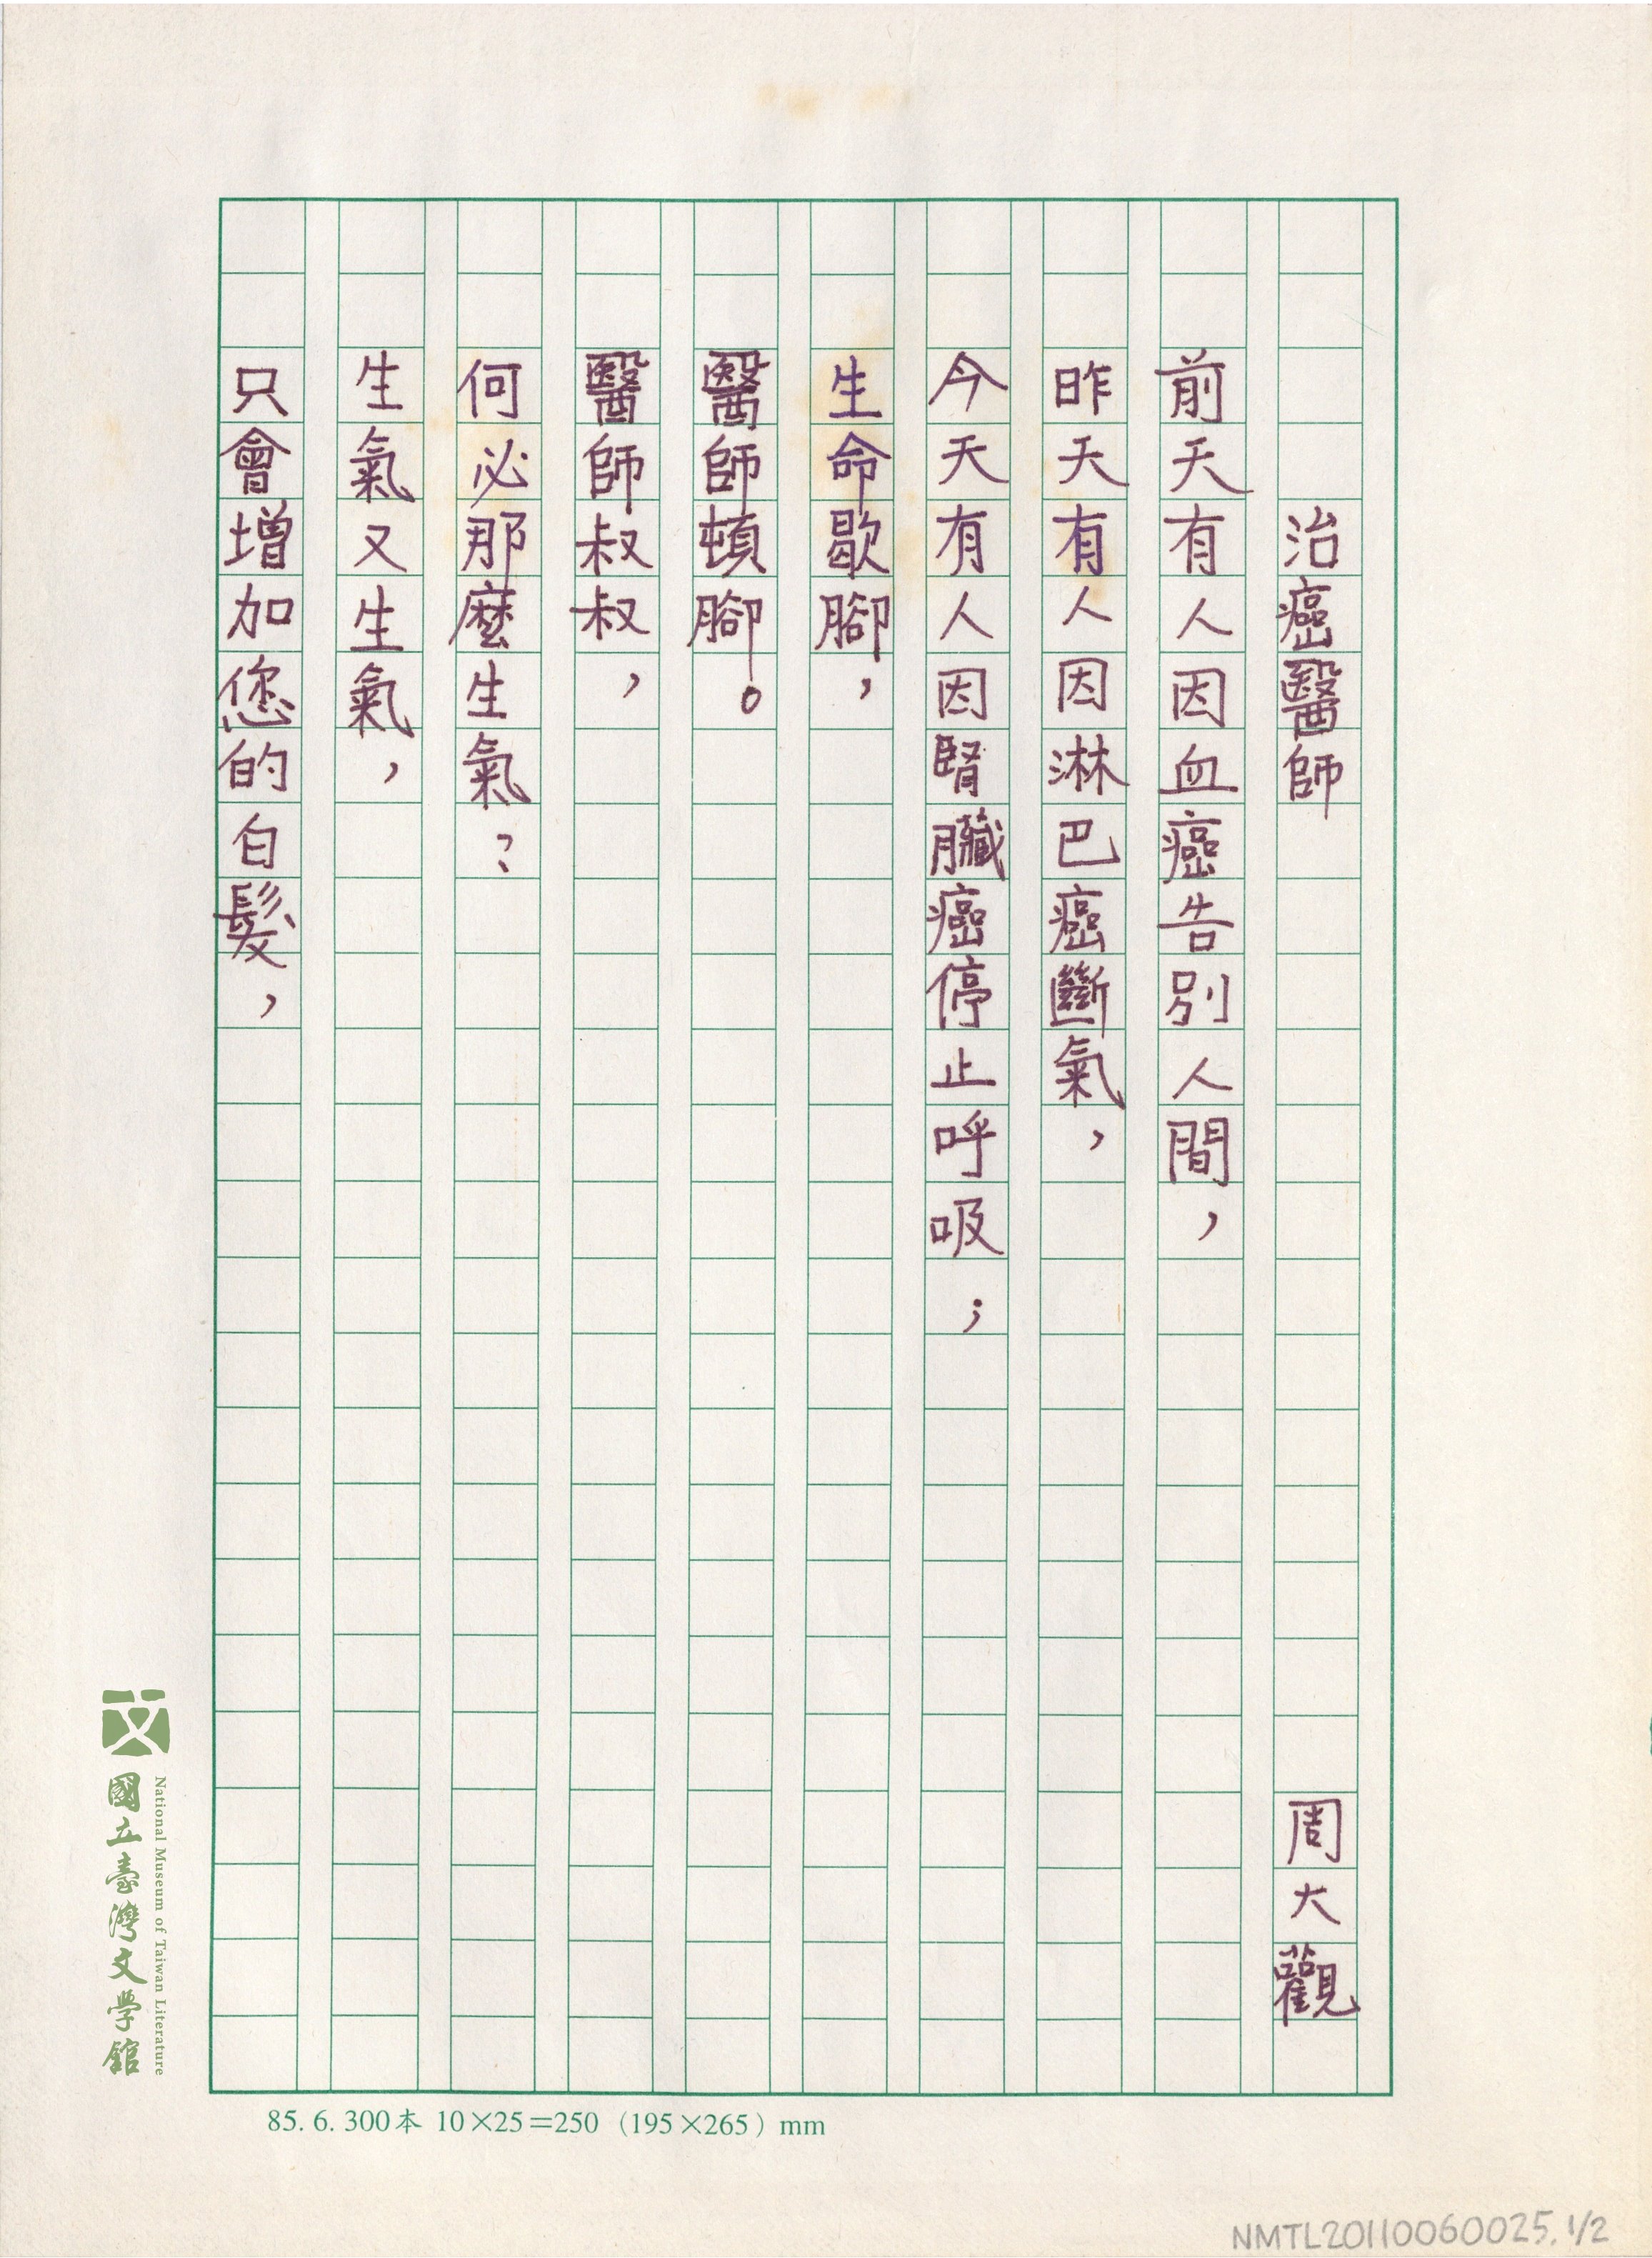 治癌醫師 周大觀
前天有人因血癌告別人間，
昨天有人因淋巴癌斷氣，
今天有人因腎臟癌停止呼吸；
生命歇腳，
醫師頓腳。
醫師叔叔，
何必那麼生氣？
生氣又生氣，
只會增加您的白髮，
國立臺灣文學館
National Museum of Taiwan Literature
85.6.300本 10×25=250 (195×265) mm
NMTL20110060025.1/2